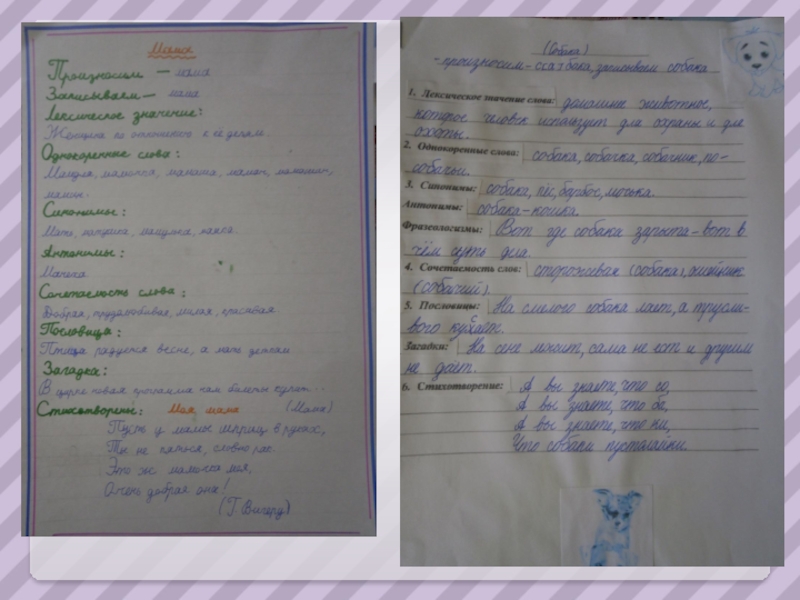 Мама
Произносим — мама
Записываем — мама
Лексическое значение:
Женщина по отношению к её детям.
Однокоренные слова:
Мамуля, мамочка, мамаша, маман, мамашин,
мамин.
Синонимы:
Мать, матушка, мамулька,
Антонимы:
Мачеха
Сочетаемость слова:
Добрая, трудолюбивая, милая, красивая
Пословица:
Птица радуется весне, а мать детям
Загадка:
В цирке новая программа нам билеты купит...
(Мама)
Стихотворены: Моя мама
Пусть у мамы шприц в руках,
Ты не пяться, словно рак
Это ж мамочка моя,
Очень добрая она!
(Г. Виеру)
(Собака)
-произносим-сабака, записываем собака
1. Лексическое значение слова: домашнее животное,
которое человек использует для охраны и для
охоты.
2. Однокоренные слова: собака, собачка, собачник, по-
собачьи.
3. Синонимы: собака, пёс, барбос, моська.
Антонимы: собака-кошка.
Фразеологизмы: Вот где собака зарыта-вот в
чём суть дела.
4. Сочетаемость слов: сторожевая (собака),
(собачий).
5. Пословицы: На смелого собака лает, а трусли-
вого кусает.
Загадки: На сене лежит, сама не ест и другим
не даёт.
6. Стихотворение: А вы знаете, что со,
А вы знаете, что ба,
А вы знаете, что ки,
Что собаки пустолайки.